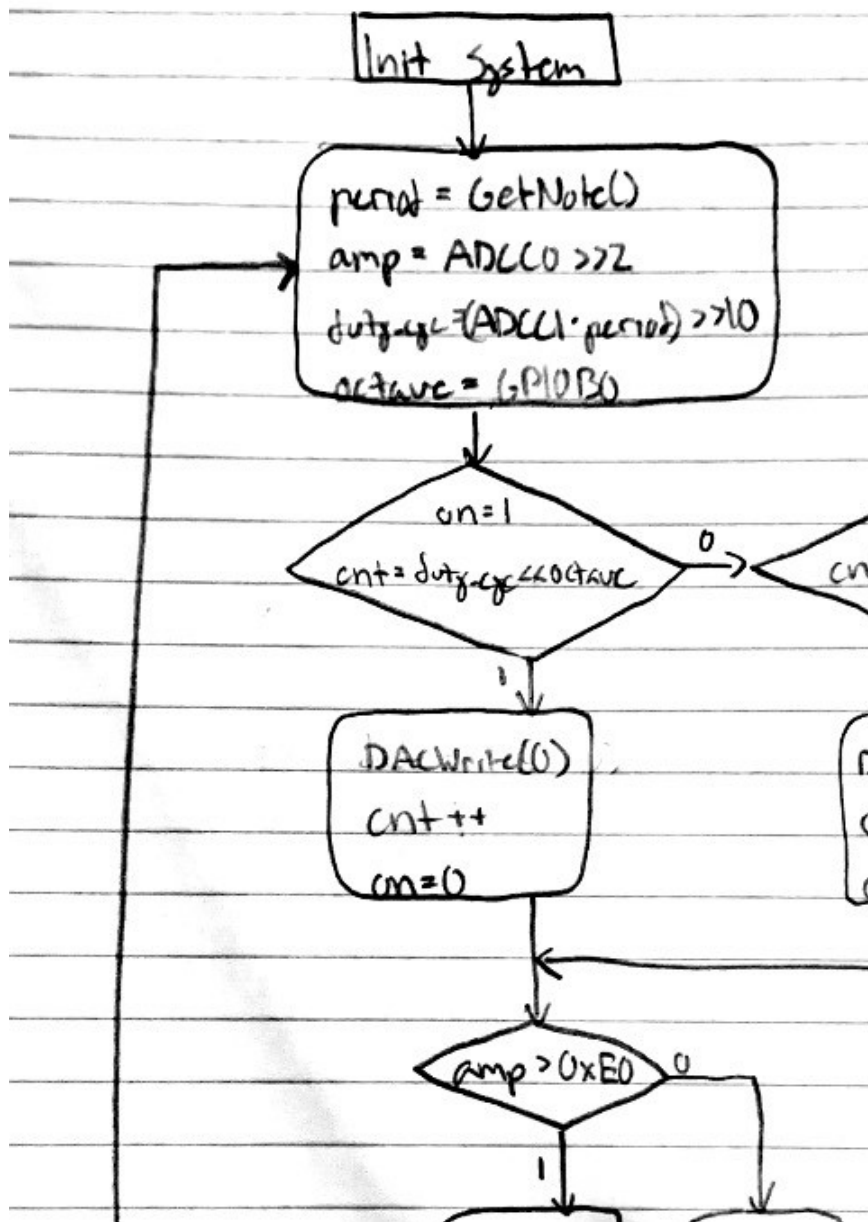 Init System
period = GetNote()
amp = ADCC0 >>2
duty_cyc=(ADCC1·period) >>10
octave = GPIOB0
on=1
cnt = duty_cyc<<octave
0
cn
1
DACWrite(0)
cnt ++
on=0
amp > 0xE0
0
1